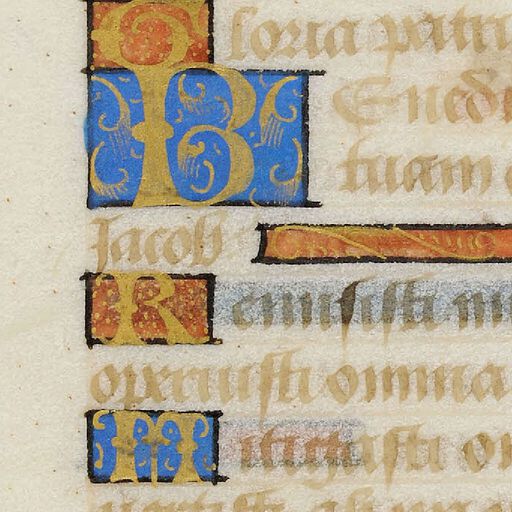 Gloria patri
Benedi
tuam
Jacob
Remisisti
operuisti omnia
Mitigasti